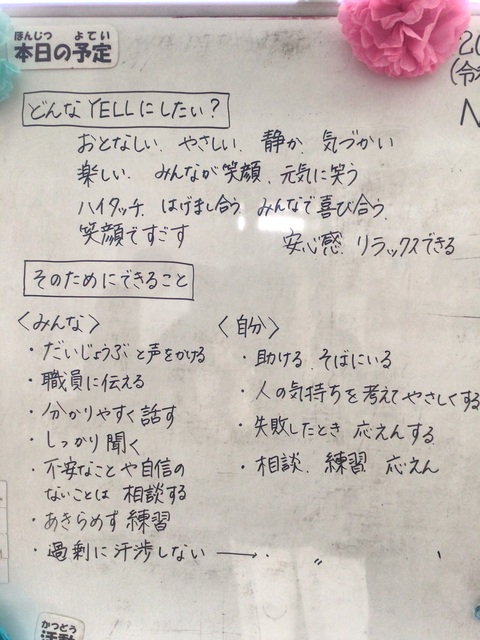 ほんじつ よてい
本日の予定
20
(令和
N
どんなYELLにしたい?
おとなしい、やさしい、静か、気づかい
楽しい、みんなが笑顔、元気に笑う
ハイタッチ、はげまし合う、みんなで喜び合う、
笑顔ですごす 安心感、リラックスできる
そのためにできること
〈みんな〉
・だいじょうぶと声をかける
・職員に伝える
・分かりやすく話す
・しっかり聞く
・不安なことや自信の
ないことは 相談する
・あきらめず練習
・過剰に汗渉しない →
〈自分〉
・助ける、そばにいる
・人の気持ちを考えてやさしくする
・失敗したとき 応えんする
・相談、練習 応えん
かつどう
活動